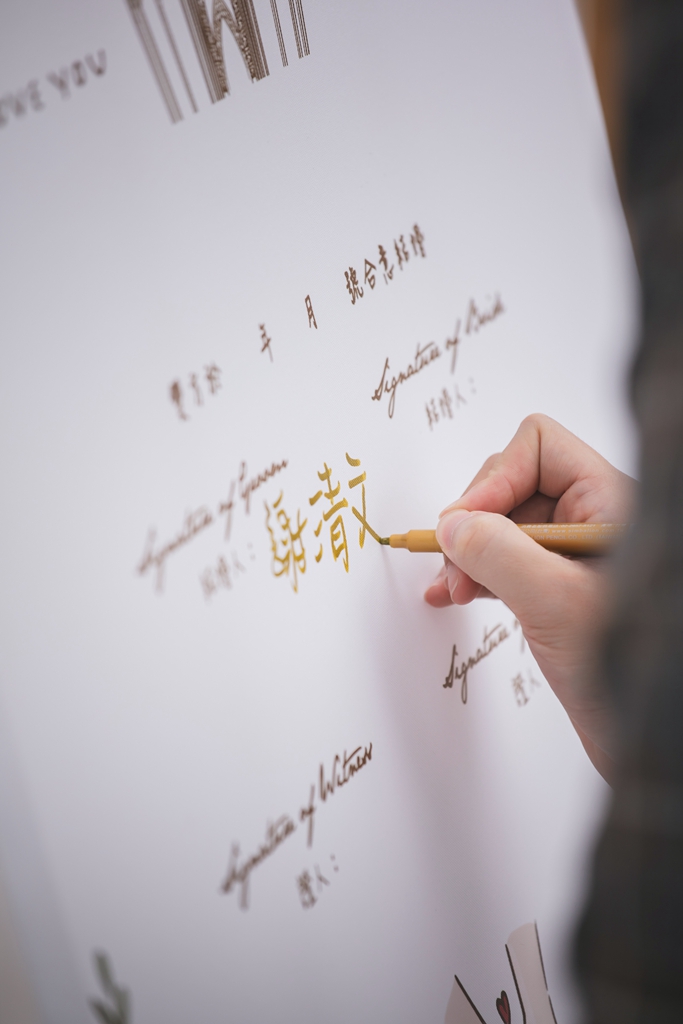 OVE YOU
W
雙方於 年 月 號合意結婚
Signature of Bride
結婚人：
Signature of Groom
結婚人： 謝
Signature of
證人
Signature of Witness
證人：